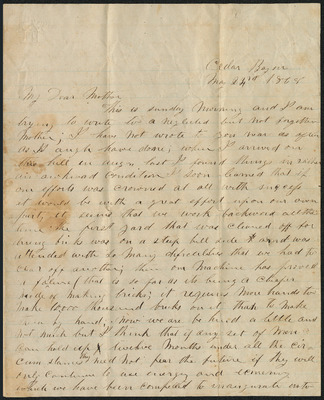 Cedar Bayou
May 24rd 1868
My Dear Mother
This is sunday Morning and I am
trying to write to a neglected but not forgotten
Mother; I have not wrote to you near as soon
as I ought have done, when I arrived on
this hill in august last I found things in rather
an awkward condition I soon learned that if
our efforts was crowned at all with success
it would be with a great effort upon our own
part, it seems that we work backward all the
time the first yard that was cleared off for
bricks was on a steep hill side & and was
attended with so Many difficulties that we had to
clear off another; then our Machine has proved
a failure that is so far as its being a cheap
mode of making bricks; it requires more hands to
make 10,000 thousand bricks on it than to make
them by hand; Now we are tired a little and
not much but I think that if any set of Men
can hold up twelve Months under all the cir-
cumstances need not fear the future if they will
only continue to use energy and economy
which we have been compelled to inaugurate into